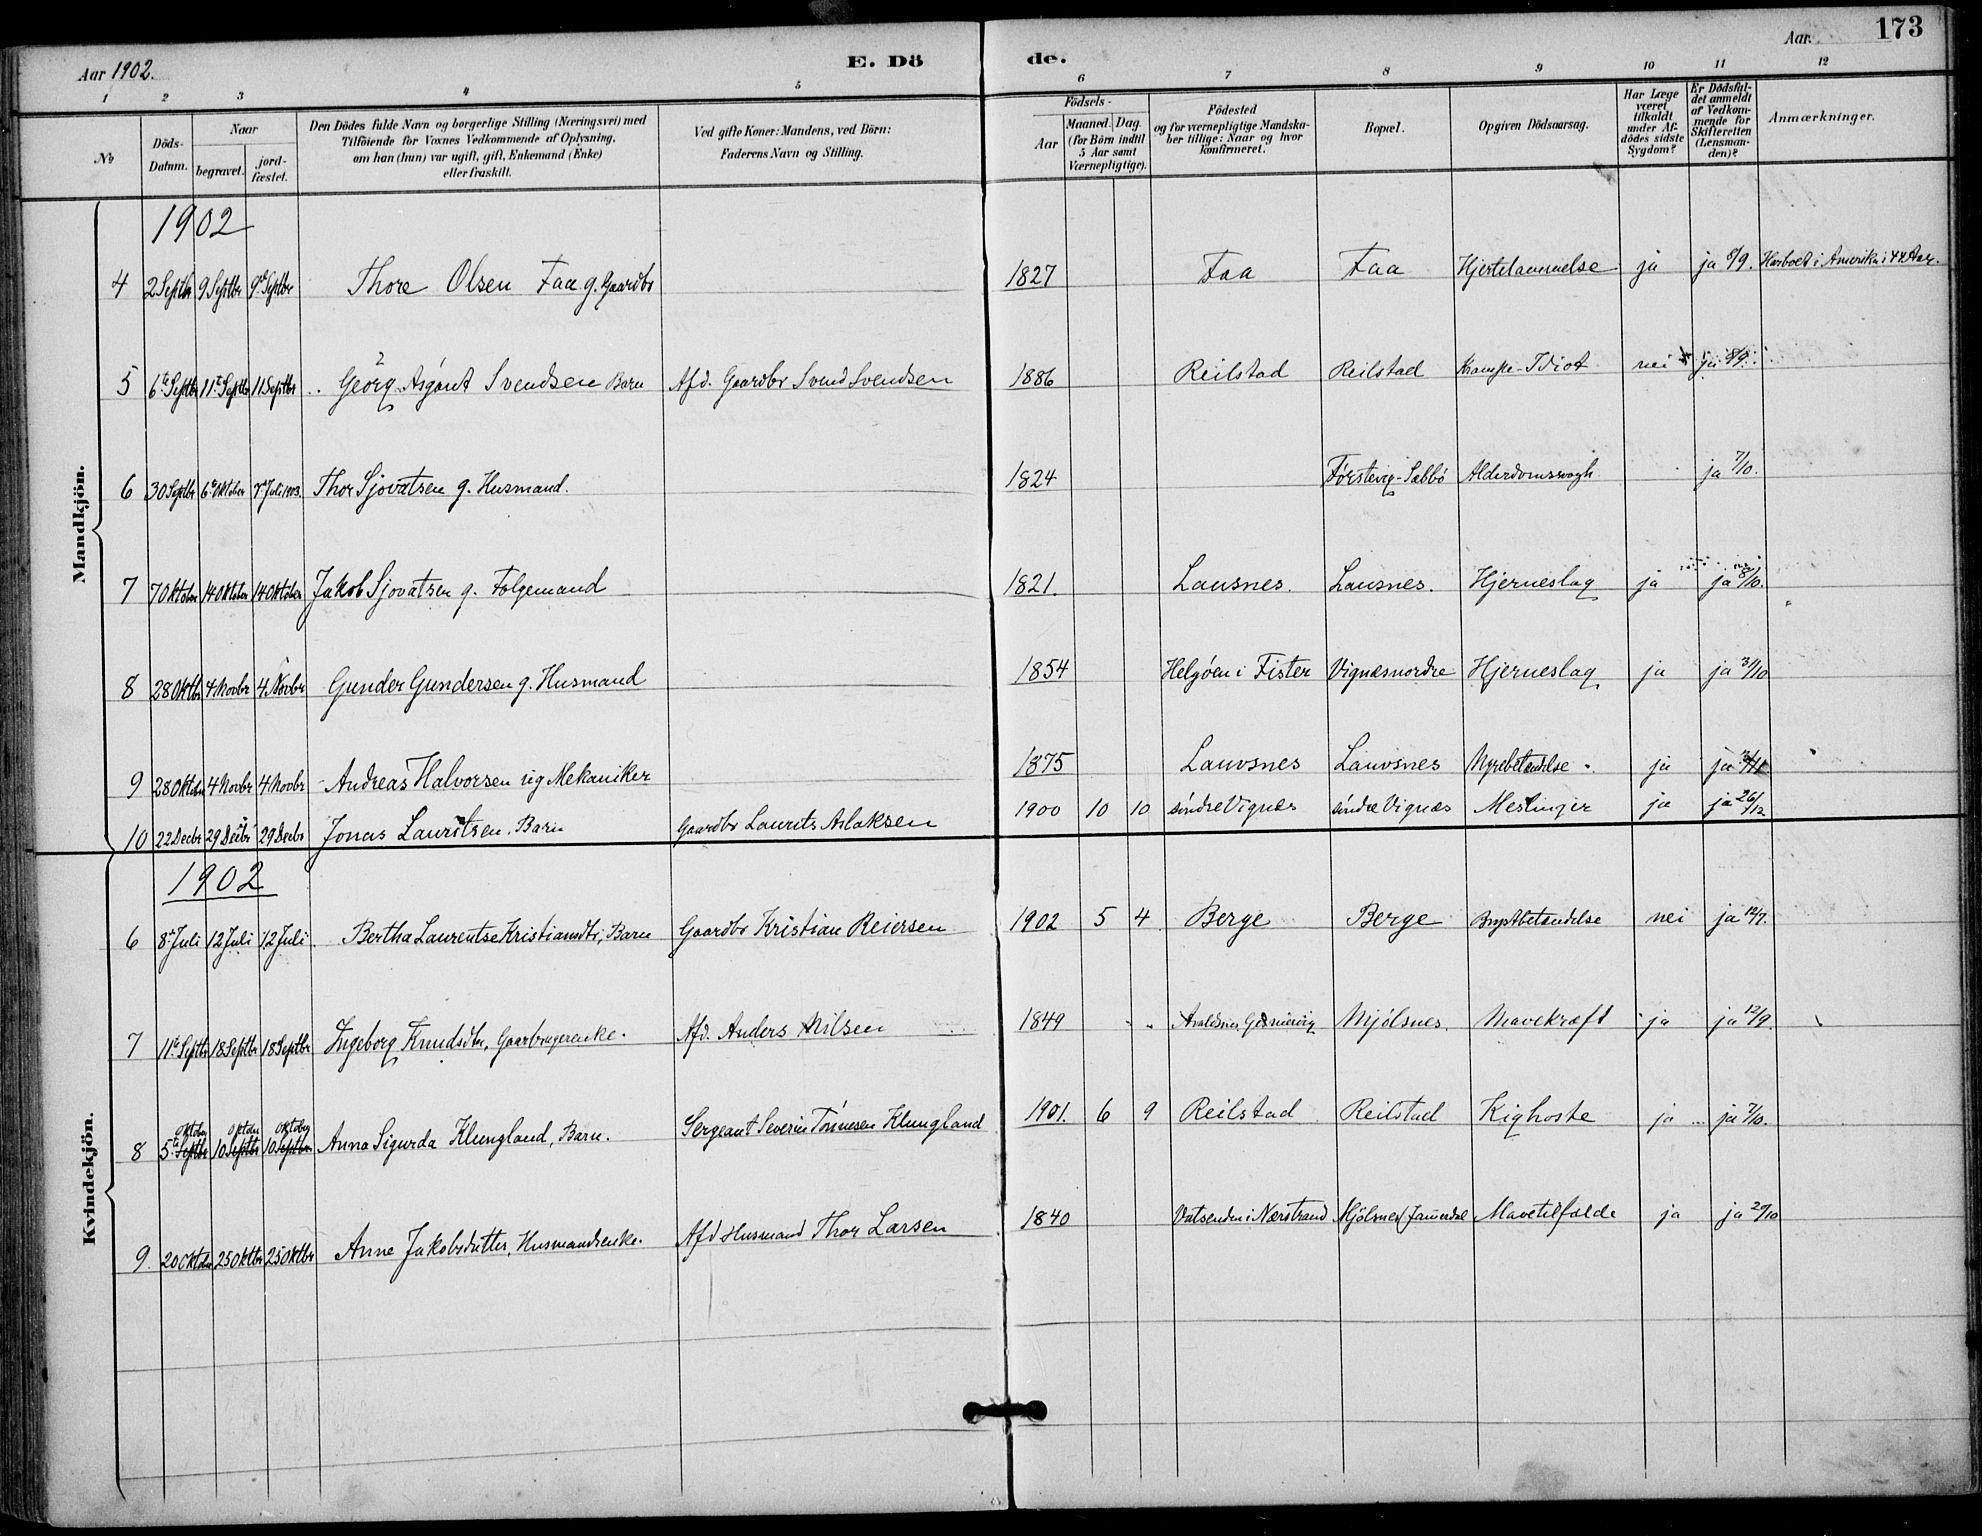 173
Aar 1902.
E. Dö
de.
Aar.
1 2 3 4 5 6 7 8 9 10 11 12
No
Döds-
Datum.
Naar
begravet.
jord-
fæstet.
Den Dödes fulde Navn og borgerlige Stilling (Næringsvei) med
Tilföiende for Voxnes Vedkommende af Oplysning,
om han (hun) var ugift, gift, Enkemand (Enke)
eller fraskilt.
Ved gifte Koner: Mandens, ved Börn:
Faderens Navn og Stilling.
Födsels-
Aar
Maaned. Dag.
(for Börn indtil
5 Aar samt
Værnepligtige).
Födested
og for værnepligtige Mandska-
ber tillige: Naar og hvor
konfirmeret.
Bopæl.
Opgiven Dödsaarsag.
Har Læge
været
tilkaldt
under Af-
dödes sidste
Sygdom?
Er Dödsfal-
det anmeldt
af Vedkom-
mende for
Skifteretten
(Lensman-
den)?
Anmærkninger.
Mandkjön.
1902
4 2 Septbr 9 Septbr 9de Septbr Thore Olsen Faa g. Gaardbr 1827 Faa Faa Hjertelammelse ja ja 8/9. Har boet i Amerika i 44 Aar.
5 6te Septbr 11te Septbr 11 Septbr Georg Asgaut Svendsen Barn Afd. Gaardbr Svend Svendsen 1886 Reilstad Reilstad Krampe-Idiot nei ja 8/9.
6 30 Septbr 6te Oktober 7de Juli 1903. Thor Sjovatsen g. Husmand. 1824 Førstevig-Sabbö ja 7/10.
7 7 Oktober 14 Oktober 14 Oktober Jakob Sjovatsen g. Følgemand 1821. Lausnes. Lausnes. Hjerneslag ja ja 8/10.
8 28 Oktbr 4 Novbr 4 Novbr Gunder Gundersen g. Husmand 1854 Helgøen i Fister Vignæsnordre Hjerneslag ja ja 31/10
9 28 Oktbr 4 Novbr 4 Novbr Andreas Halvorsen ug Mekaniker 1875 Lauvsnes Lauvsnes Nyrebetændelse ja ja
10 22 Decbr 29 Decbr 29 Decbr Jonas Lauritsen. Barn Gaardbr Laurits Aslaksen 1900 10 10 söndre Vignæs söndre Vignæs Meslinger ja ja 26/12
Kvindekjön.
1902
6 8de Juli 12 Juli 12 Juli Bertha Laurentse Kristiansdtr, Barn Gaardbr Kristian Reiersen 1902 5 4 Berge Berge Brystbetændelse nei ja 12/7.
7 11te Septbr 18 Septbr 18 Septbr Ingeborg Knudsdtr, Gaarbrugerenke. Afd. Anders Nilsen 1849 Mjölsnes. Mavekræft ja ja 12/9.
Oktober Oktober Oktober
8 5te Septbr 10 Septbr 10 Septbr Anna Sigurda Klungland, Barn. Sergeant Severin Tönnesen Klungland 1901. 6 9 Reilstad Reilstad Kighoste ja ja 7/10.
9. 20 Oktbr 25 Oktbr 25 Oktbr Anne Jakobsdatter, Husmandsenke. Afd Husmand Thor Larsen 1840 Vatsenden i Nærstrand Mjölsnes Mavetilfælde ja ja 21/10